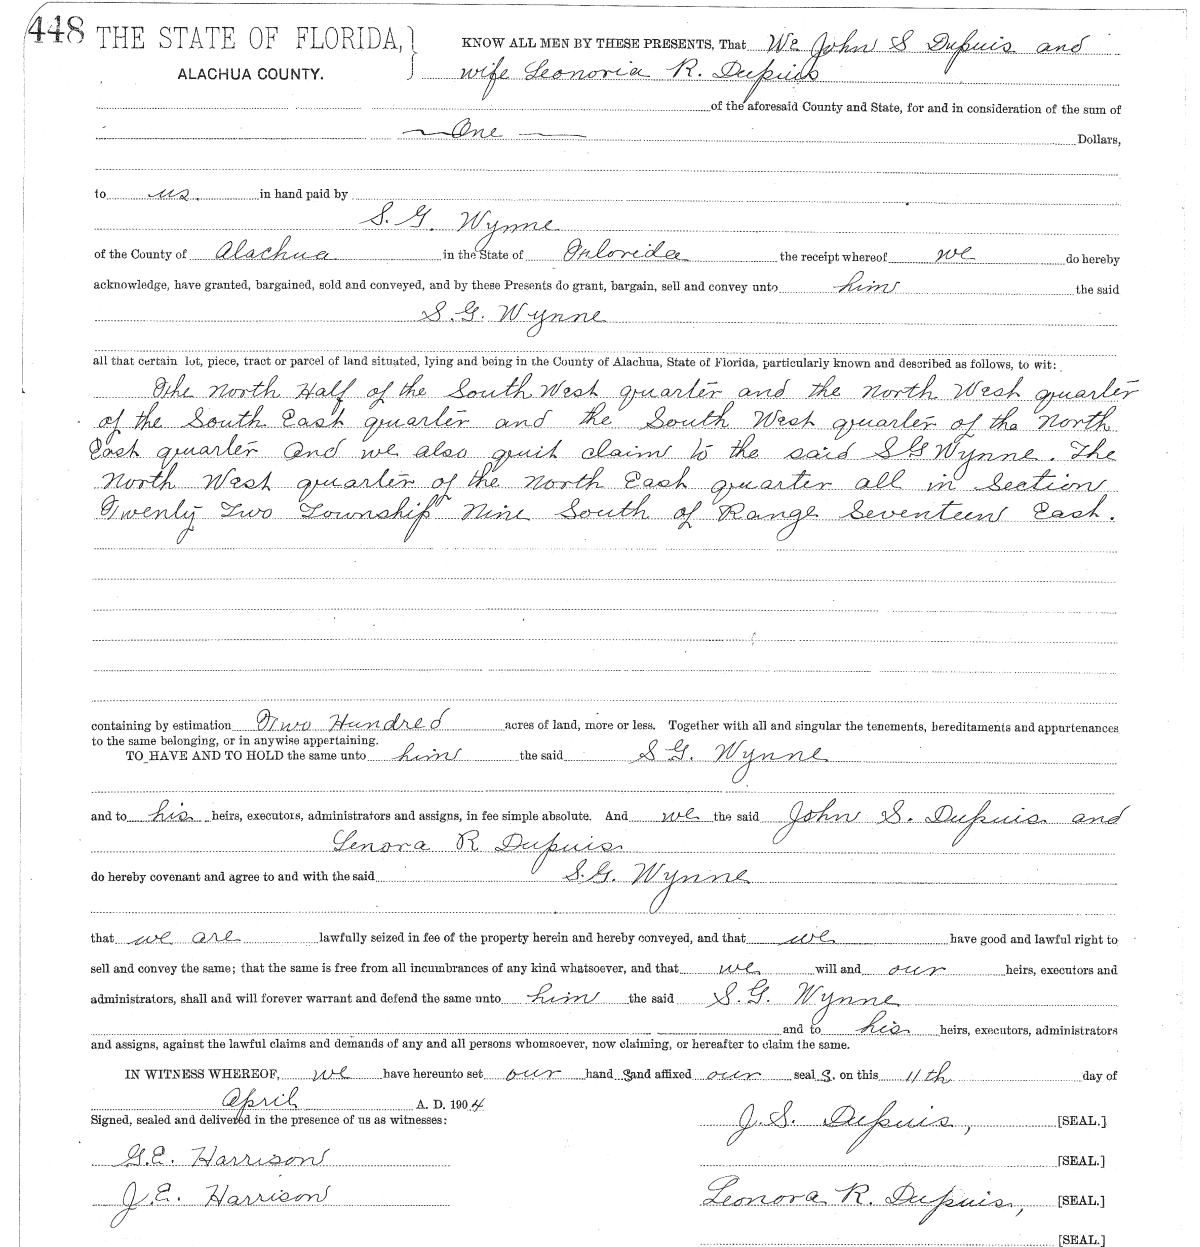 448 THE STATE OF FLORIDA, } KNOW ALL MEN BY THESE PRESENTS, That We John S Dupuis and
ALACHUA COUNTY. wife Leonoria R. Dupuis
of the aforesaid County and State, for and in consideration of the sum of
One Dollars,
to us. in hand paid by
S. G. Wynne
of the County of Alachua in the State of Florida the receipt whereof we do hereby
acknowledge, have granted, bargained, sold and conveyed, and by these Presents do grant, bargain, sell and convey unto him the said
S. G. Wynne
all that certain lot, piece, tract or parcel of land situated, lying and being in the County of Alachua, State of Florida, particularly known and described as follows, to wit:
The North Half of the South West quarter and the North West quarter
of the South East quarter and the South West quarter of the North
East quarter and we also quit claim to the said S G Wynne. The
North West quarter of the North East quarter all in Section
Twenty Two Township Nine South of Range Seventeen East.
containing by estimation Two Hundred acres of land, more or less. Together with all and singular the tenements, hereditaments and appurtenances
to the same belonging, or in anywise appertaining.
TO HAVE AND TO HOLD the same unto him the said S G. Wynne
and to his heirs, executors, administrators and assigns, in fee simple absolute. And we the said John S. Dupuis and
Lenora R Dupuis
do hereby covenant and agree to and with the said S.G. Wynne
that we are lawfully seized in fee of the property herein and hereby conveyed, and that we have good and lawful right to
sell and convey the same; that the same is free from all incumbrances of any kind whatsoever, and that we will and our heirs, executors and
administrators, shall and will forever warrant and defend the same unto him the said S.G. Wynne
and to his heirs, executors, administrators
and assigns, against the lawful claims and demands of any and all persons whomsoever, now claiming, or hereafter to claim the same.
IN WITNESS WHEREOF, we have hereunto set our hand s and affixed our seal s. on this 11th day of
April A. D. 1904
Signed, sealed and delivered in the presence of us as witnesses: J. S. Dupuis, [SEAL.]
G.E. Harrison [SEAL.]
J.E. Harrison Leonora R. Dupuis, [SEAL.]
[SEAL.]